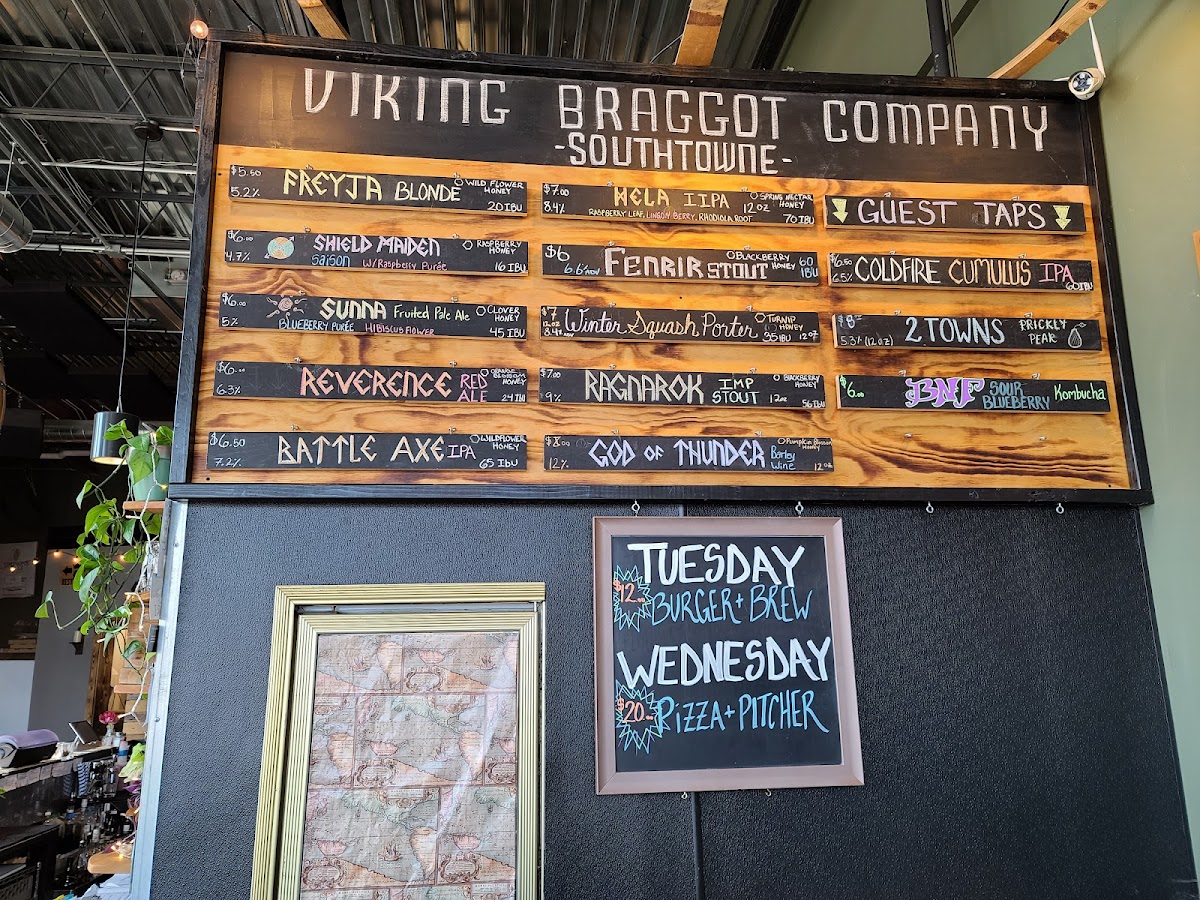 VIKING BRAGGOT COMPANY
-SOUTHTOWNE-
$5.50 FREYJA BLONDE WILD FLOWER HONEY
5.2% 20 IBU
$6.00 SHIELD MAIDEN RASPBERRY HONEY
4.7% Saison W/Raspberry Purée 16 IBU
$6.00 SUNNA Fruited Pale Ale CLOVER HONEY
5% BLUEBERRY PURÉE HIBISCUS FLOWER 45 IBU
$6.00 REVERENCE RED ALE ORANGE BLOSSOM HONEY
6.3% 24 IBU
$6.50 BATTLE AXE IPA WILDFLOWER HONEY
7.2% 65 IBU
$7.00 HELA IIPA SPRING NECTAR HONEY
8.4% RASPBERRY LEAF, LINGON BERRY, RHODIOLA ROOT 12oz 70 IBU
$6 FENRIR STOUT BLACKBERRY HONEY 60 IBU
6.6% ABV
$7 Winter Squash Porter TURNIP HONEY
12oz 8.4% 35 IBU 12oz
$7.00 RAGNAROK IMP STOUT BLACKBERRY HONEY
9% 12oz 56 IBU
$8.00 GOD OF THUNDER Barley Wine Pumpkin Blossom Honey
12% 12oz
GUEST TAPS
$6.50 COLDFIRE CUMULUS IPA
6.5% 60 IBU
$8 2 TOWNS PRICKLY PEAR
5.3% (12oz)
$6.00 BNF SOUR BLUEBERRY Kombucha
TUESDAY
$12.00 BURGER + BREW
WEDNESDAY
$20.00 PIZZA + PITCHER